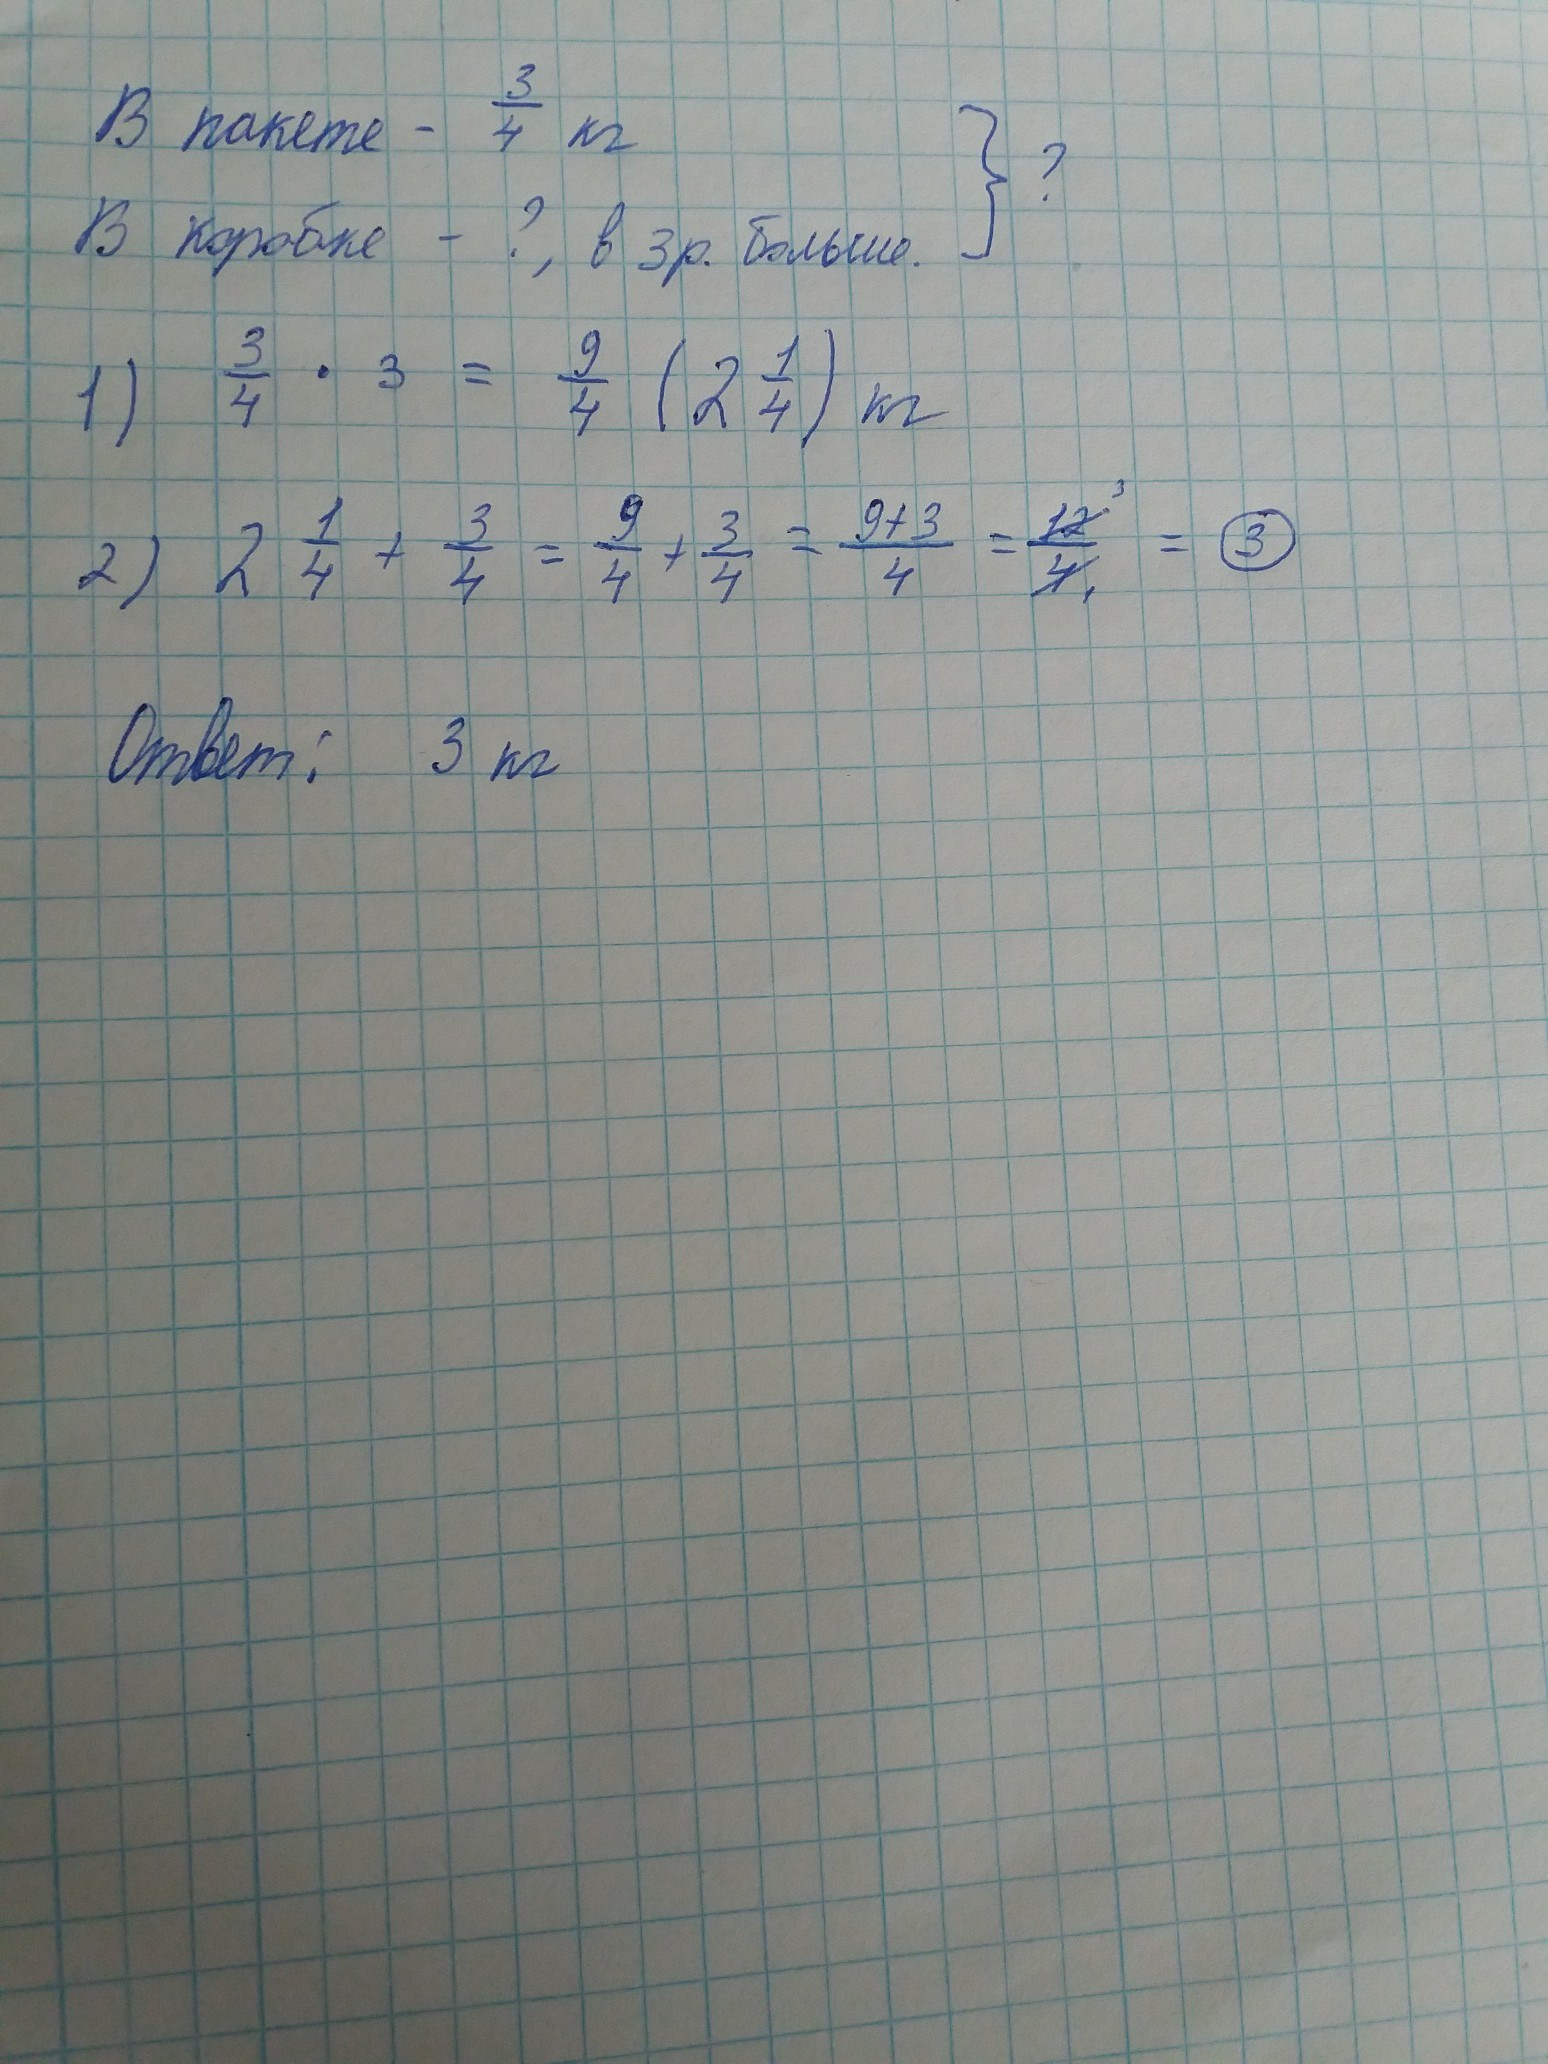 В пакете - 3/4 кг } ?
В коробке - ?, в 3 р. больше.
1) 3/4 · 3 = 9/4 (2 1/4) кг
2) 2 1/4 + 3/4 = 9/4 + 3/4 = 9+3/4 = 12³/4₁ = 3
Ответ: 3 кг